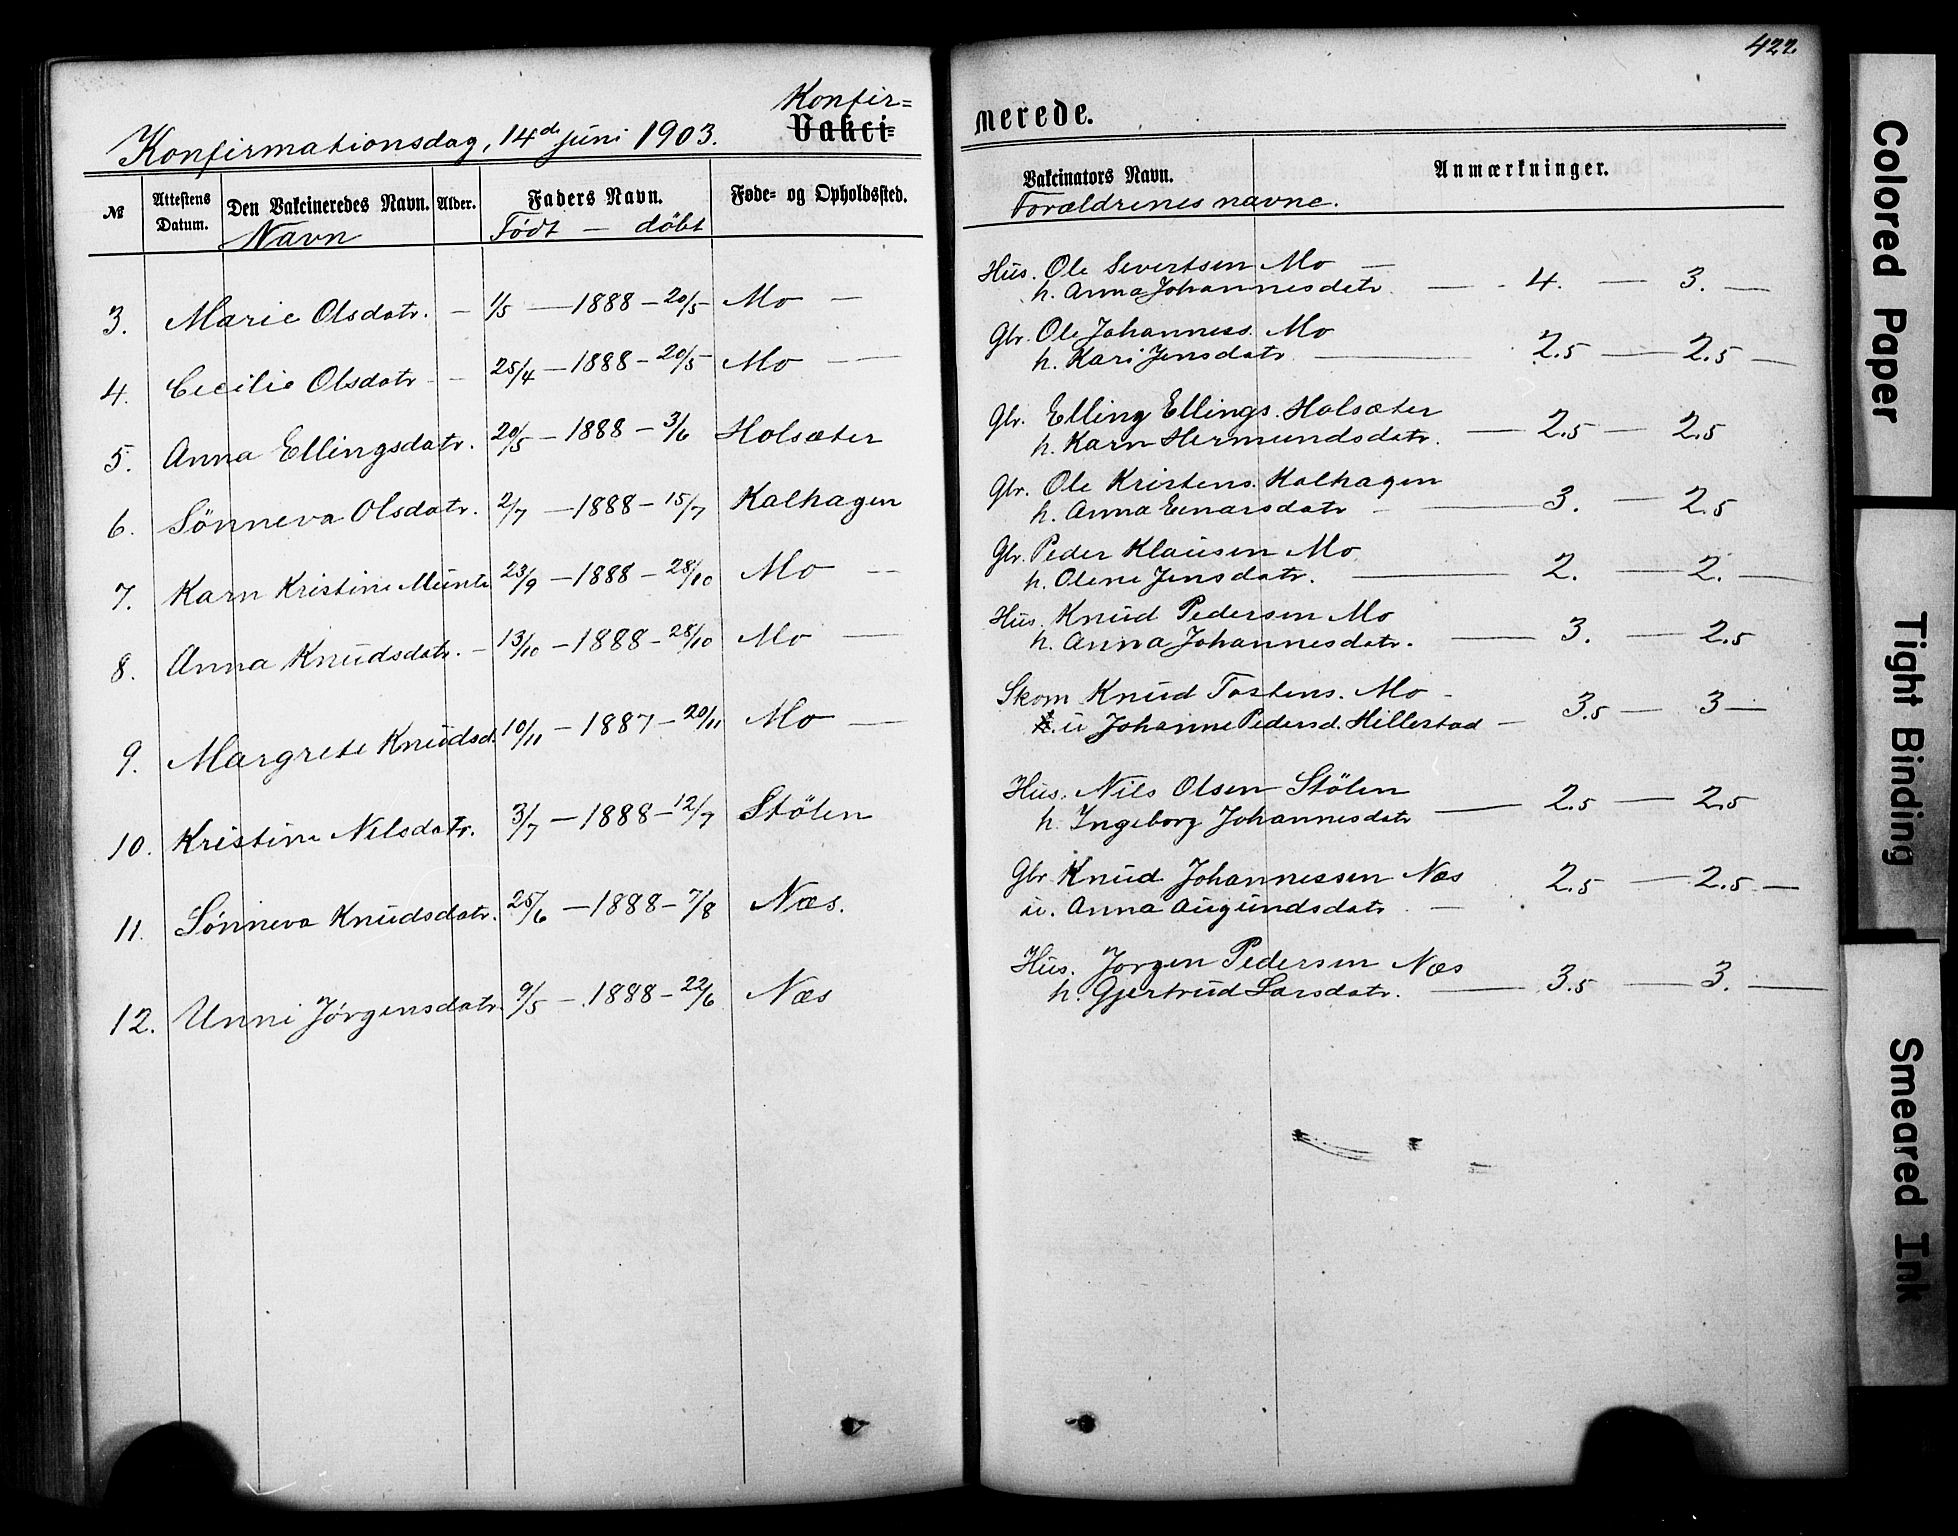 422
Konfir=
Konfirmationsdag, 14de juni 1903. Vakci=
nerede.
№ Attestens Datum. Den Vakcineredes Navn. Alder. Faders Navn. Føde- og Opholdssted.
Navn Födt — döbt
Vakcinators Navn. Anmærkninger.
Forældrenes navne.
3. Marie Olsdatr. — 1/5 — 1888 — 20/5 Mo —
Hus. Ole Severtsen Mo —
h. Anna Johannesdatr. — 4. — 3. —
4. Cecilie Olsdatr — 25/4 — 1888 — 20/5 Mo —
Gbr. Ole Johanness. Mo
h. Kari Jensdatr. — 2.5 — 2.5 —
5. Anna Ellingsdatr. 20/5 — 1888 — 3/6 Holsæter
Gbr. Elling Ellings. Holsæter
h. Karn Hermundsdatr. — 2.5 — 2.5
6. Sönneva Olsdatr. 2/7 — 1888 — 15/7 Kalhagen
Gbr. Ole Kristens. Kalhagen
h. Anna Einarsdatr — 3. — 2.5
7. Karn Kristine Munte 23/9 — 1888 — 28/10 Mo —
Gbr. Peder Klausen Mo
h. Oline Jensdatr. — 2. — 2. —
8. Anna Knudsdatr. — 13/10 — 1888 — 28/10 Mo —
Hus. Knud Pedersen Mo
h. Anna Johannesdatr. — 3. — 2.5
9. Margrete Knudsd. 10/11 — 1887 — 20/11 Mo —
Skom Knud Tostens. Mo -
u Johanne Pedersd. Hillestad — 3.5 — 3 —
10. Kristine Nilsdatr. 3/7 — 1888 — 12/7 Stölen
Hus. Nils Olsen Stölen
h. Ingeborg Johannesdatr — 2.5 — 2.5
11. Sönneva Knudsdatr. 25/6 — 1888 — 7/8 Næs.
Gbr Knud Johannessen Næs 2.5 — 2.5 —
u. Anna Augundsdatr. —
12. Unni Jörgensdatr. 9/5 — 1888 — 22/6 Næs
Hus. Jörgen Pedersen Næs
h. Gjertrud Larsdatr. — 3.5 — 3. —
Colored Paper
Tight Binding
Smeared Ink